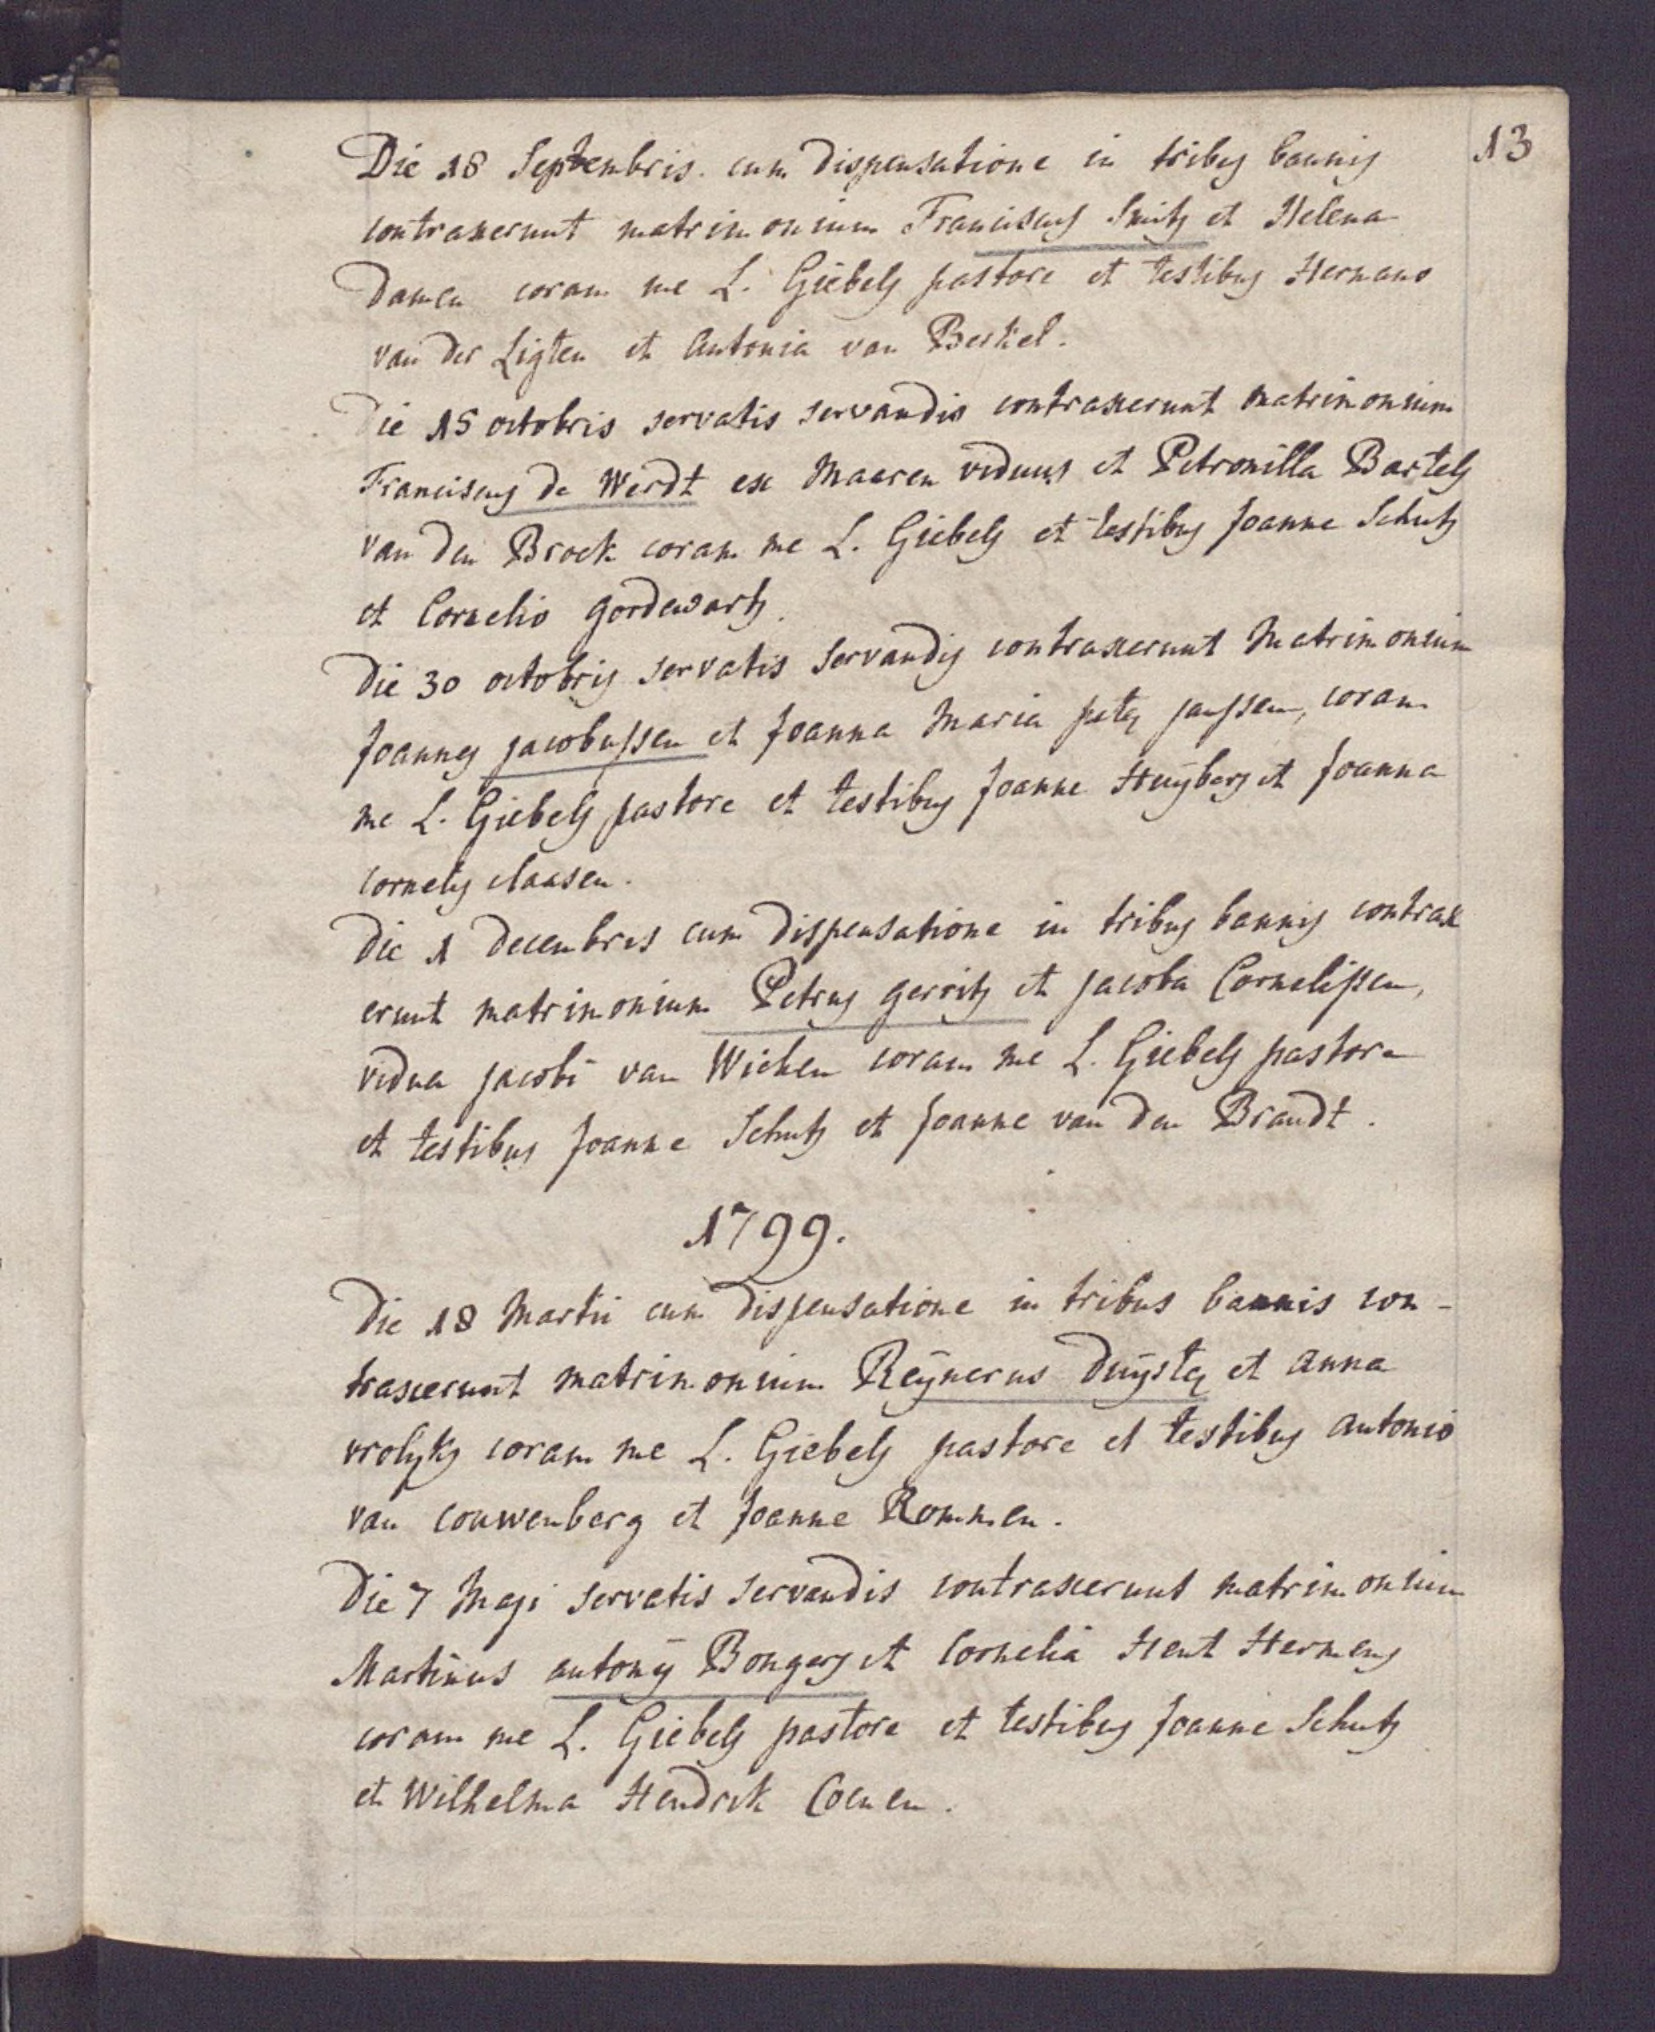 13
Die 18 Septembris. cum dispensatione in tribus bannis
contraxerunt matrimonium Franciscus Smits et Helena
Damen coram me L. Giebels pastore et testibus Hermano
van der Ligten et Antonia van Berkel.
Die 15 octobris servatis servandis contraxerunt matrimonium
Franciscus de Werdt ex Maaren viduus et Petronilla Bartels
van den Broek coram me L. Giebels et testibus Joanne Schuts
et Cornelio Gordewarts.
Die 30 octobris servatis servandis contraxerunt Matrimonium
Joannes Jacobussen et Joanna Maria Peters Janssen, coram
me L. Giebels pastore et testibus Joanne Huijbers et Joanna
Cornelis Claasen.
Die 1 decembris cum dispensatione in tribus bannis contrax
erunt matrimonium Petrus Gerrits et Jacoba Cornelissen,
vidua Jacobi van Wichen coram me L. Giebels pastore
et testibus Joanne Schuts et Joanne van den Brandt.
1799.
Die 18 Martii cum dispensatione in tribus bannis con-
traxerunt matrimonium Reÿnerus Duijsters et Anna
vrolyks coram me L. Giebels pastore et testibus Antonio
van Couwenberg et Joanne Rommen.
Die 7 Maji servatis servandis contraxerunt matrimonium
Martinus Antonij Bongers et Cornelia Hent Hermens
coram me L. Giebels pastore et testibus Joanne Schuts
et Wilhelma Hendrik Coenen.